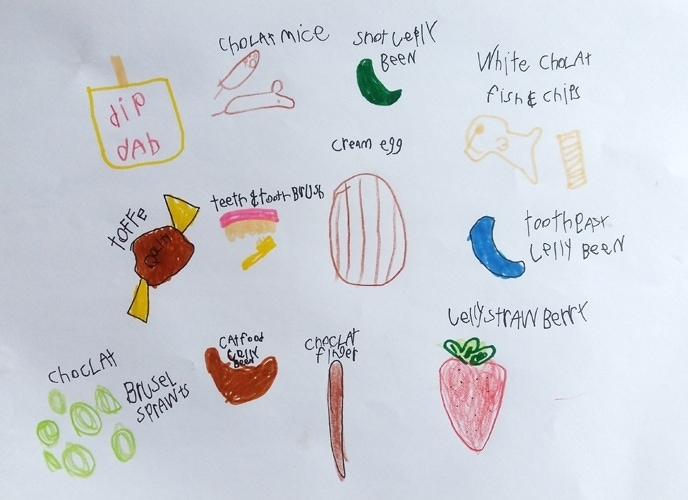 dip
dAb
CHOLAT MICE
SNOT LELLY
BEEN
WHITE CHOLAT
fish & chips
cream egg
tOFFE
teeth & tooth BRUSH
tooth PAST
LELLY BEEN
CHOCLAT
BRUSEL
SPRAWTS
CATFOOD
LELLY
BEEN
CHOCLAT
fiNger
LELLY STRAW BERRY